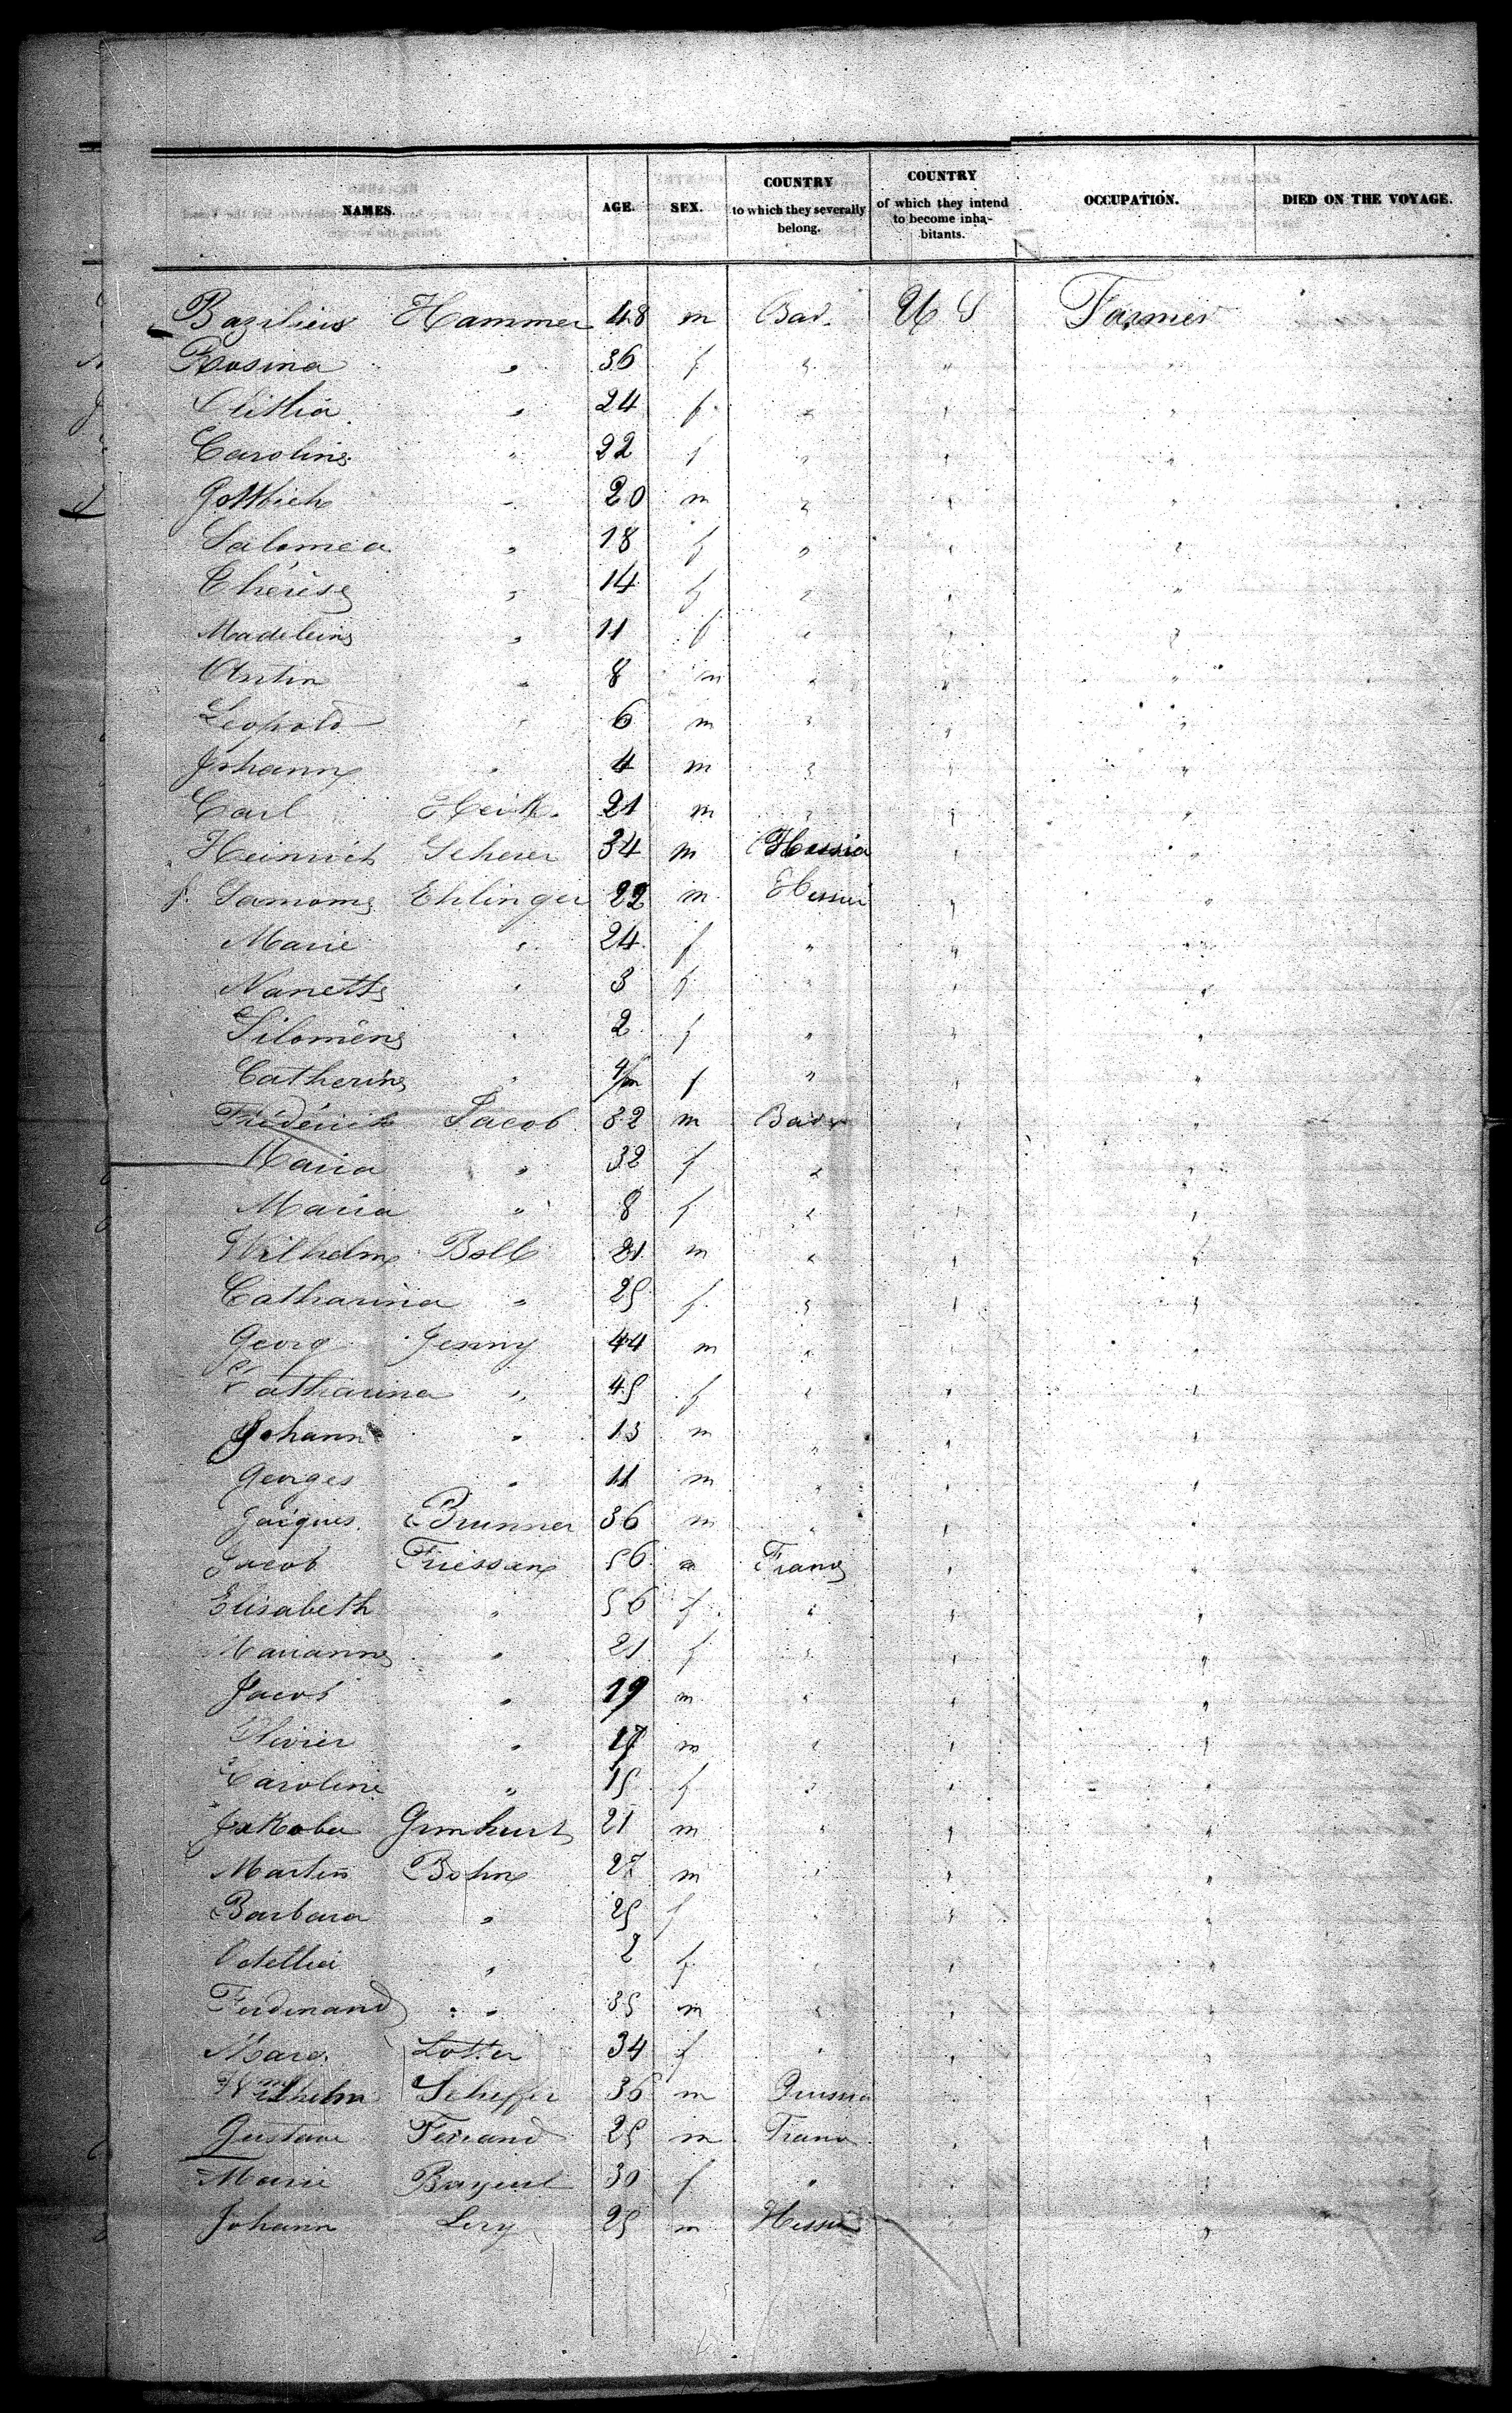 NAMES. AGE. SEX. COUNTRY to which they severally belong. COUNTRY of which they intend to become inhabitants. OCCUPATION. DIED ON THE VOYAGE.
Bazilius Hammer 48 m Bad. U S Farmer
Rosina " 36 f " " "
24 f " " "
Caroline " 22 f " " "
Gottlieb " 20 m " " "
Salomea " 18 f " " "
Thérèse " 14 f " " "
Madeleine " 11 f " " "
Anton " 8 m " " "
Leopold " 6 m " " "
Johann " 4 m " " "
Carl 21 m " " "
Heinrich Scherer 34 m Hessia " "
Ehlinger 22 m Hessia " "
Marie " 24 f " " "
Nanette " 3 f " " "
Filomène " 2 f " " "
Catherine " 4/m f " " "
Frédérick Jacob 32 m Bade " "
Maria " 32 f " " "
Maria " 8 f " " "
Wilhelm Bolb 21 m " " "
Catharina " 25 f " " "
Georg Jenny 44 m " " "
Catharina " 45 f " " "
Johann " 13 m " " "
Georges " 11 m " " "
Jacques Brunner 36 m " " "
Jacob 56 m France " "
Elisabeth " 56 f " " "
Marianne " 21 f " " "
Jacob " 19 m " " "
Olivier " 17 m " " "
Caroline " 15 f " " "
21 m " " "
Martin Bohn 27 m " " "
Barbara " 25 f " " "
" 2 f " " "
Ferdinand " 35 m " " "
Marg. Lotter 34 f " " "
Wilhelm Scheffer 36 m Prussia " "
Gustave Ferrand 25 m France " "
Marie 30 f " " "
Johann 25 m Hessia " "